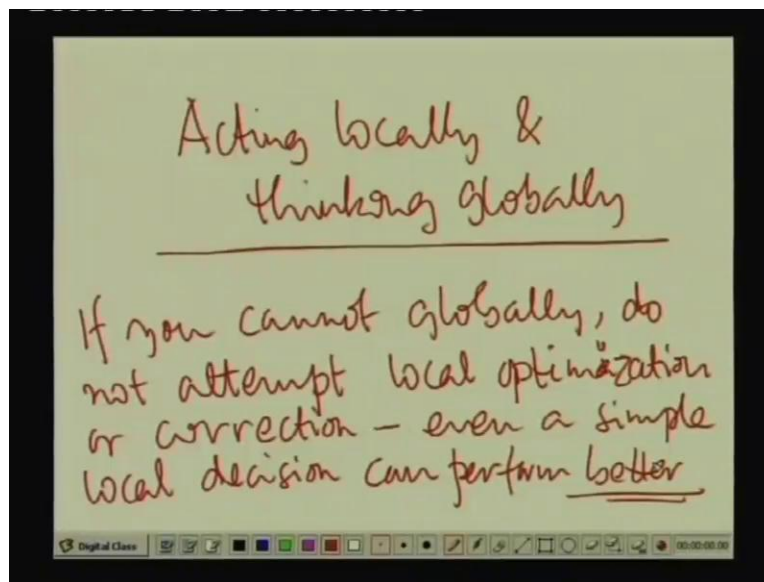 Acting locally &
thinking globally
If you cannot globally, do
not attempt local optimization
or correction – even a simple
local decision can perform better
Digital Class
00:00:00.00